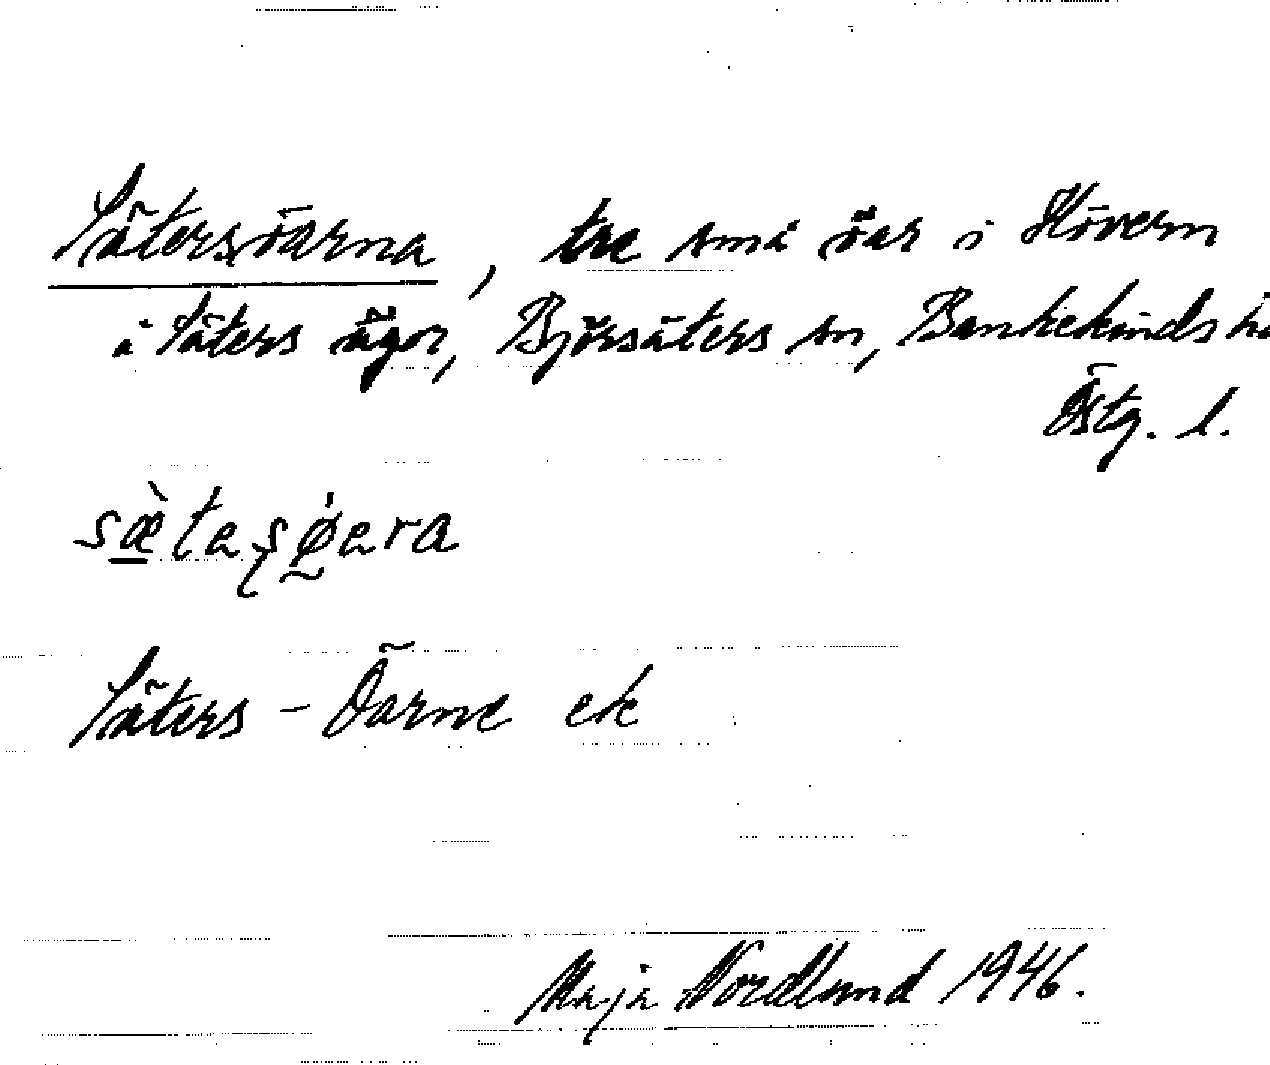 Sätersöarna, tre små öar i Hövern
å Säters ägor, Björsäters sn, Bankekinds h
Östg. l.
sæ̀taşø̀ara
Säters - Öarne ek
Maja Nordlund 1946.